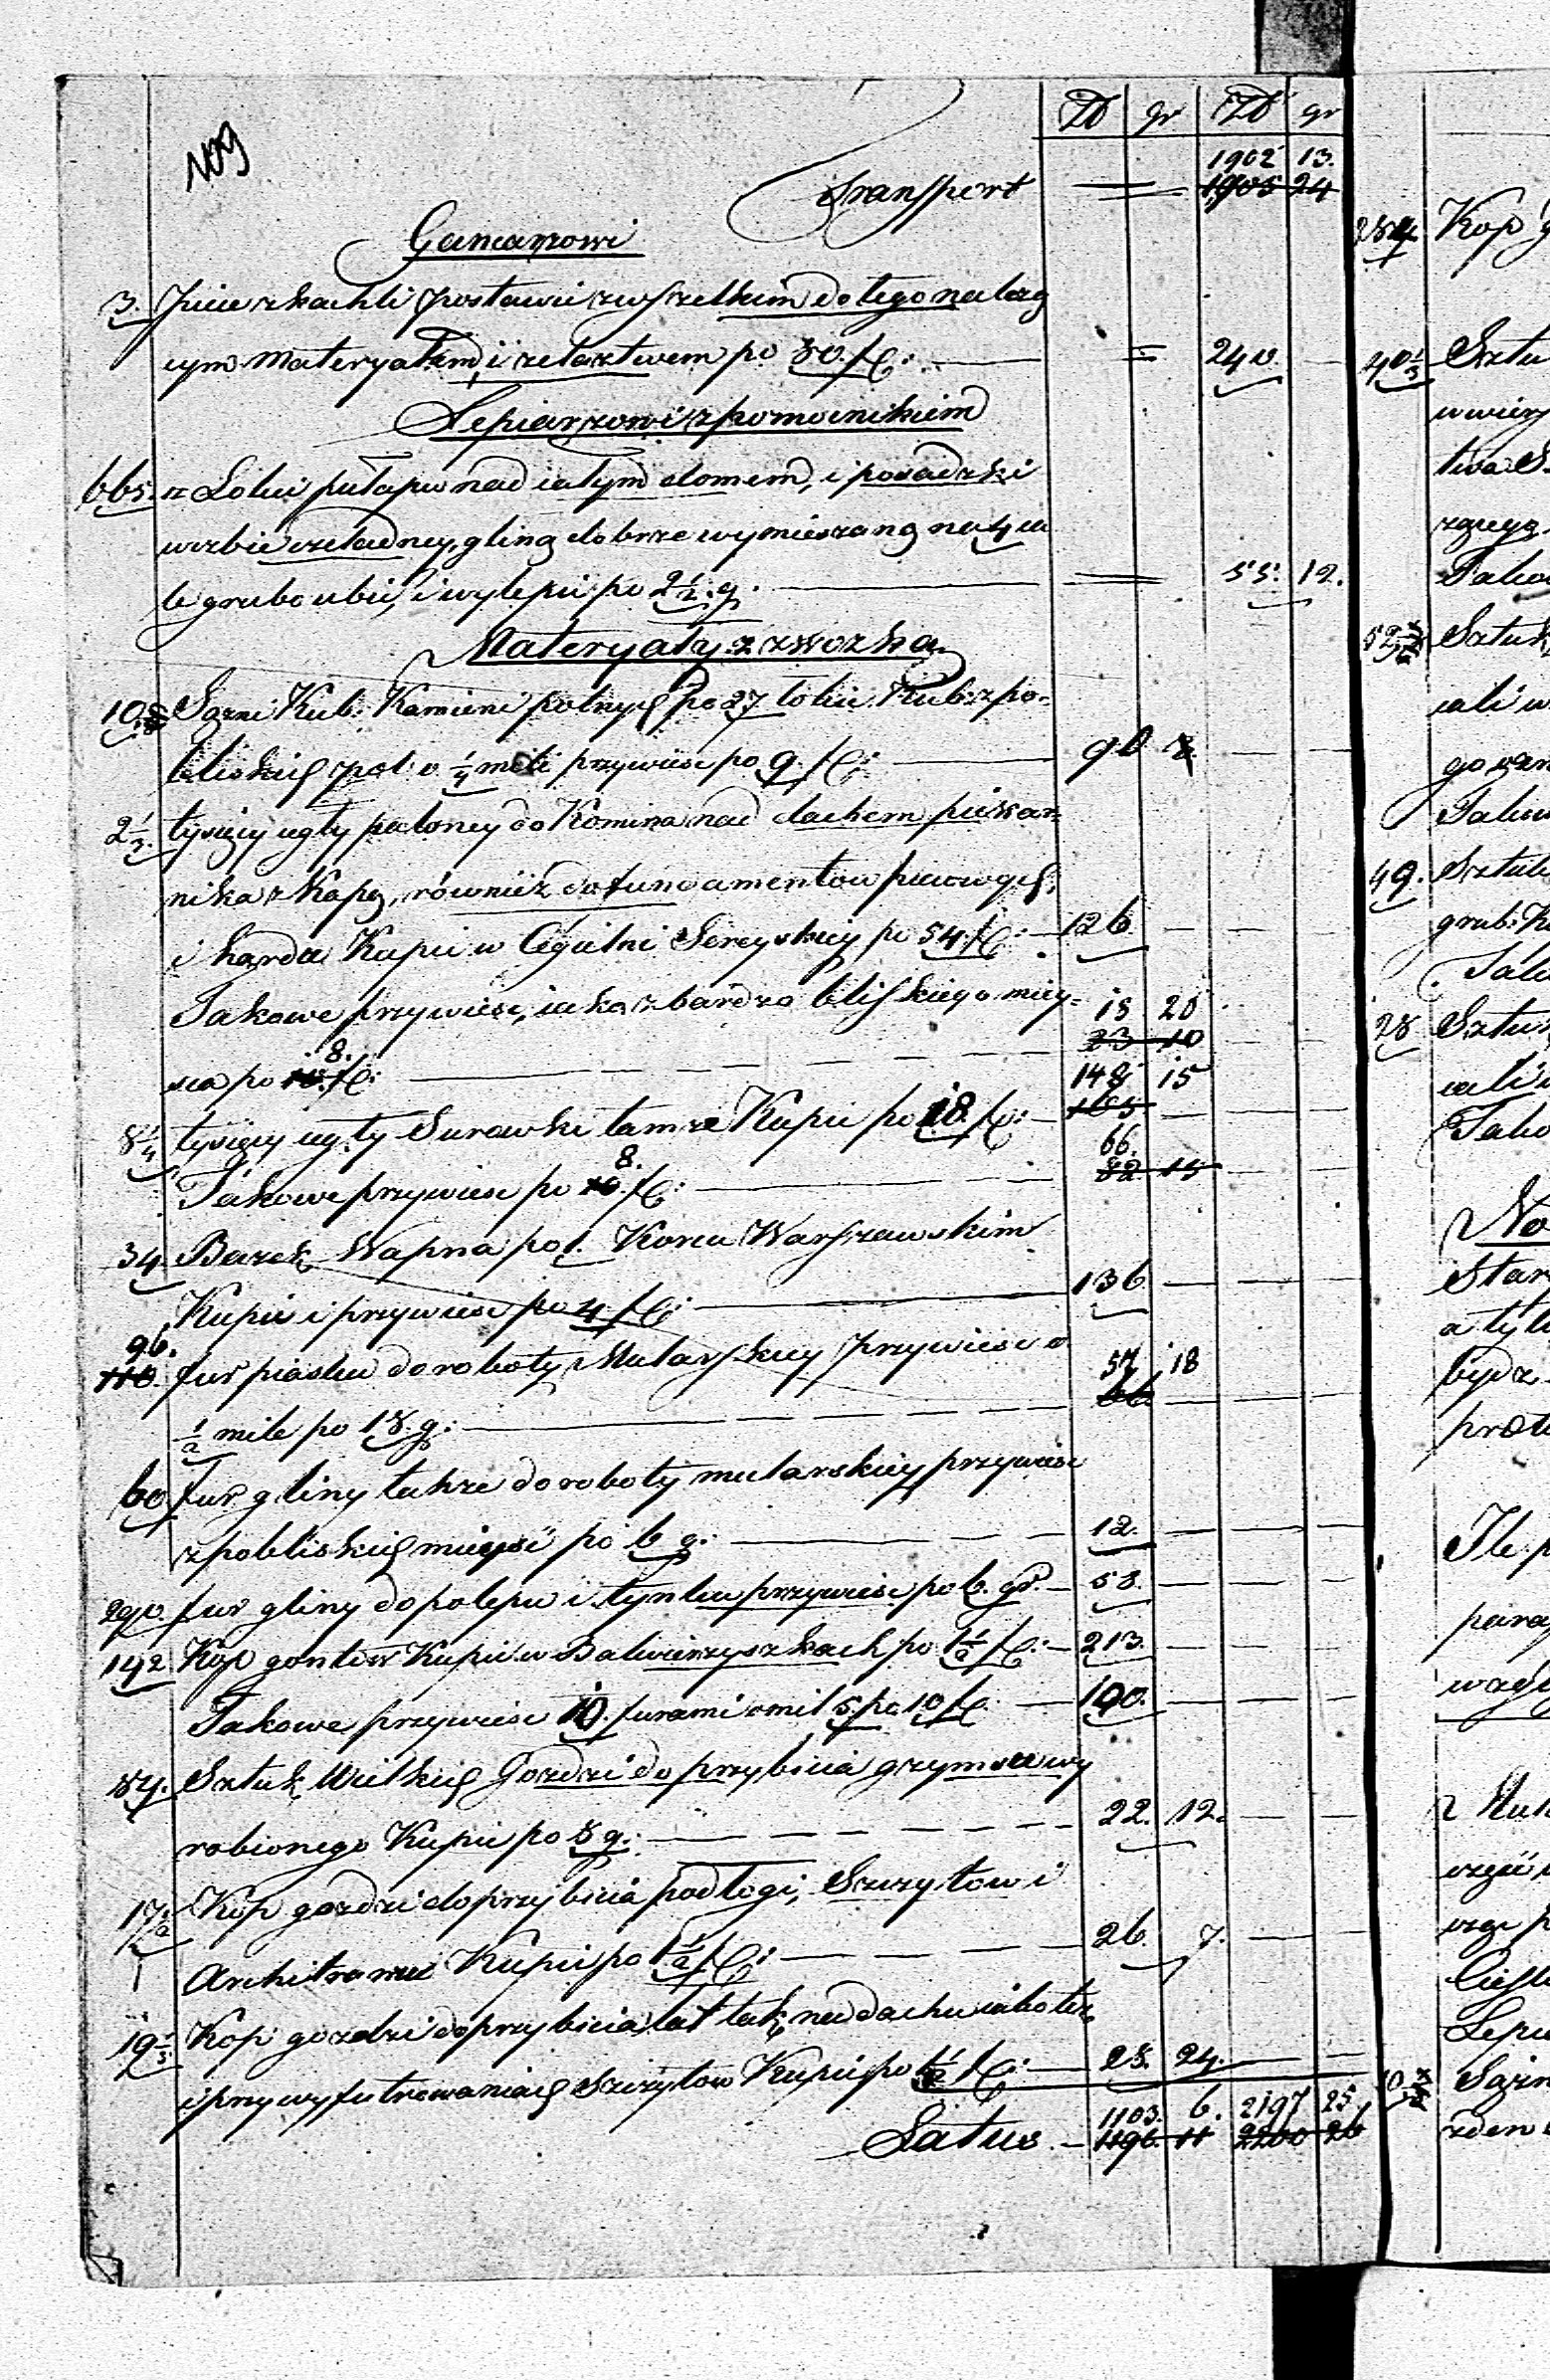 109
Zł gr Zł gr
1902 13.
Transport = = 1905 24
Garncarzowi
3. Piece z kachli postawić z wszelkim do tego należą
cym Materyałem, i żelaztwem po 80. fl: = 240. —
Lepiarzowi z pomocnikiem
665. Łokci pułapu nad całym domem, i posadzki
w izbie czeladney, gliną dobrze wymieszaną na 4 ca
le grubo ubić, i wylepić po 2½ g. — = 55. 12.
Materyały z zwózką
10. Sążni Kub: Kamieni polnych po 27 łokci Kub: z po-
bliskich pól o ¼ mili przywieść po 9. fl: — 90
2⅓. tysięcy cegły paloney do Komina nad dachem piekar-
nika z Kapą, również do fundamentów piecowych
Kupić w Cegielni Sereyskiey po 54. fl: — 126 —
Takowe przywieść, jako z bardzo bliskiego miey- 18 20
23 10
sca po 10. 8. fl: — 148 15
8¼ tysięcy cegły Surowki tamże Kupić po 18. fl: — 165 —
66.
Takowe przywieść po 10. 8. fl: — 82 15
34. Beczek Wapna po 1. Korcu Warszawskim
Kupić i przywieść po 4. fl: — 136. —
96.
110. fur piasku do roboty Mularskiey przywieść o 57 18
½ mile po 18 g: — 66. —
60 fur gliny także do roboty mularskiey przywieść
z pobliskich mieysc po 6 g: — 12. —
290. fur gliny do polepu i tynku przywieść po 6. gr. — 58. —
142 Kop gontów Kupić w Balwierzyszkach po 1½ fl: — 213. —
Takowe przywieść 10. furami o mil 5. po 10 fl. — 100. —
84. Sztuk Wielkich Gozdzi do przybicia gzymsu wy
robionego Kupić po 8 g: — 22. 12.
17½ Kop gozdzi do przybicia podłogi, Szczytów i
Architrawu Kupić po 1½ fl: — 26. 7.
19⅕ Kop gozdzi do przybicia łat tak na dachu jako też
i przy wyfutrowaniach Szczytów Kupić po 1½ fl: — 28. 24.
1103. 6. 2197 25
Latus. — 1196. 11 2200 26
284. Kop
40⅓ Sztu
w wierz
Takow
Sztuk
cali w
Takow
49. Sztuk
grub: K
Tak
28 Sztuk
cali
Tako
No
Star
a tyl
będz
prote
Ile p
Sążn